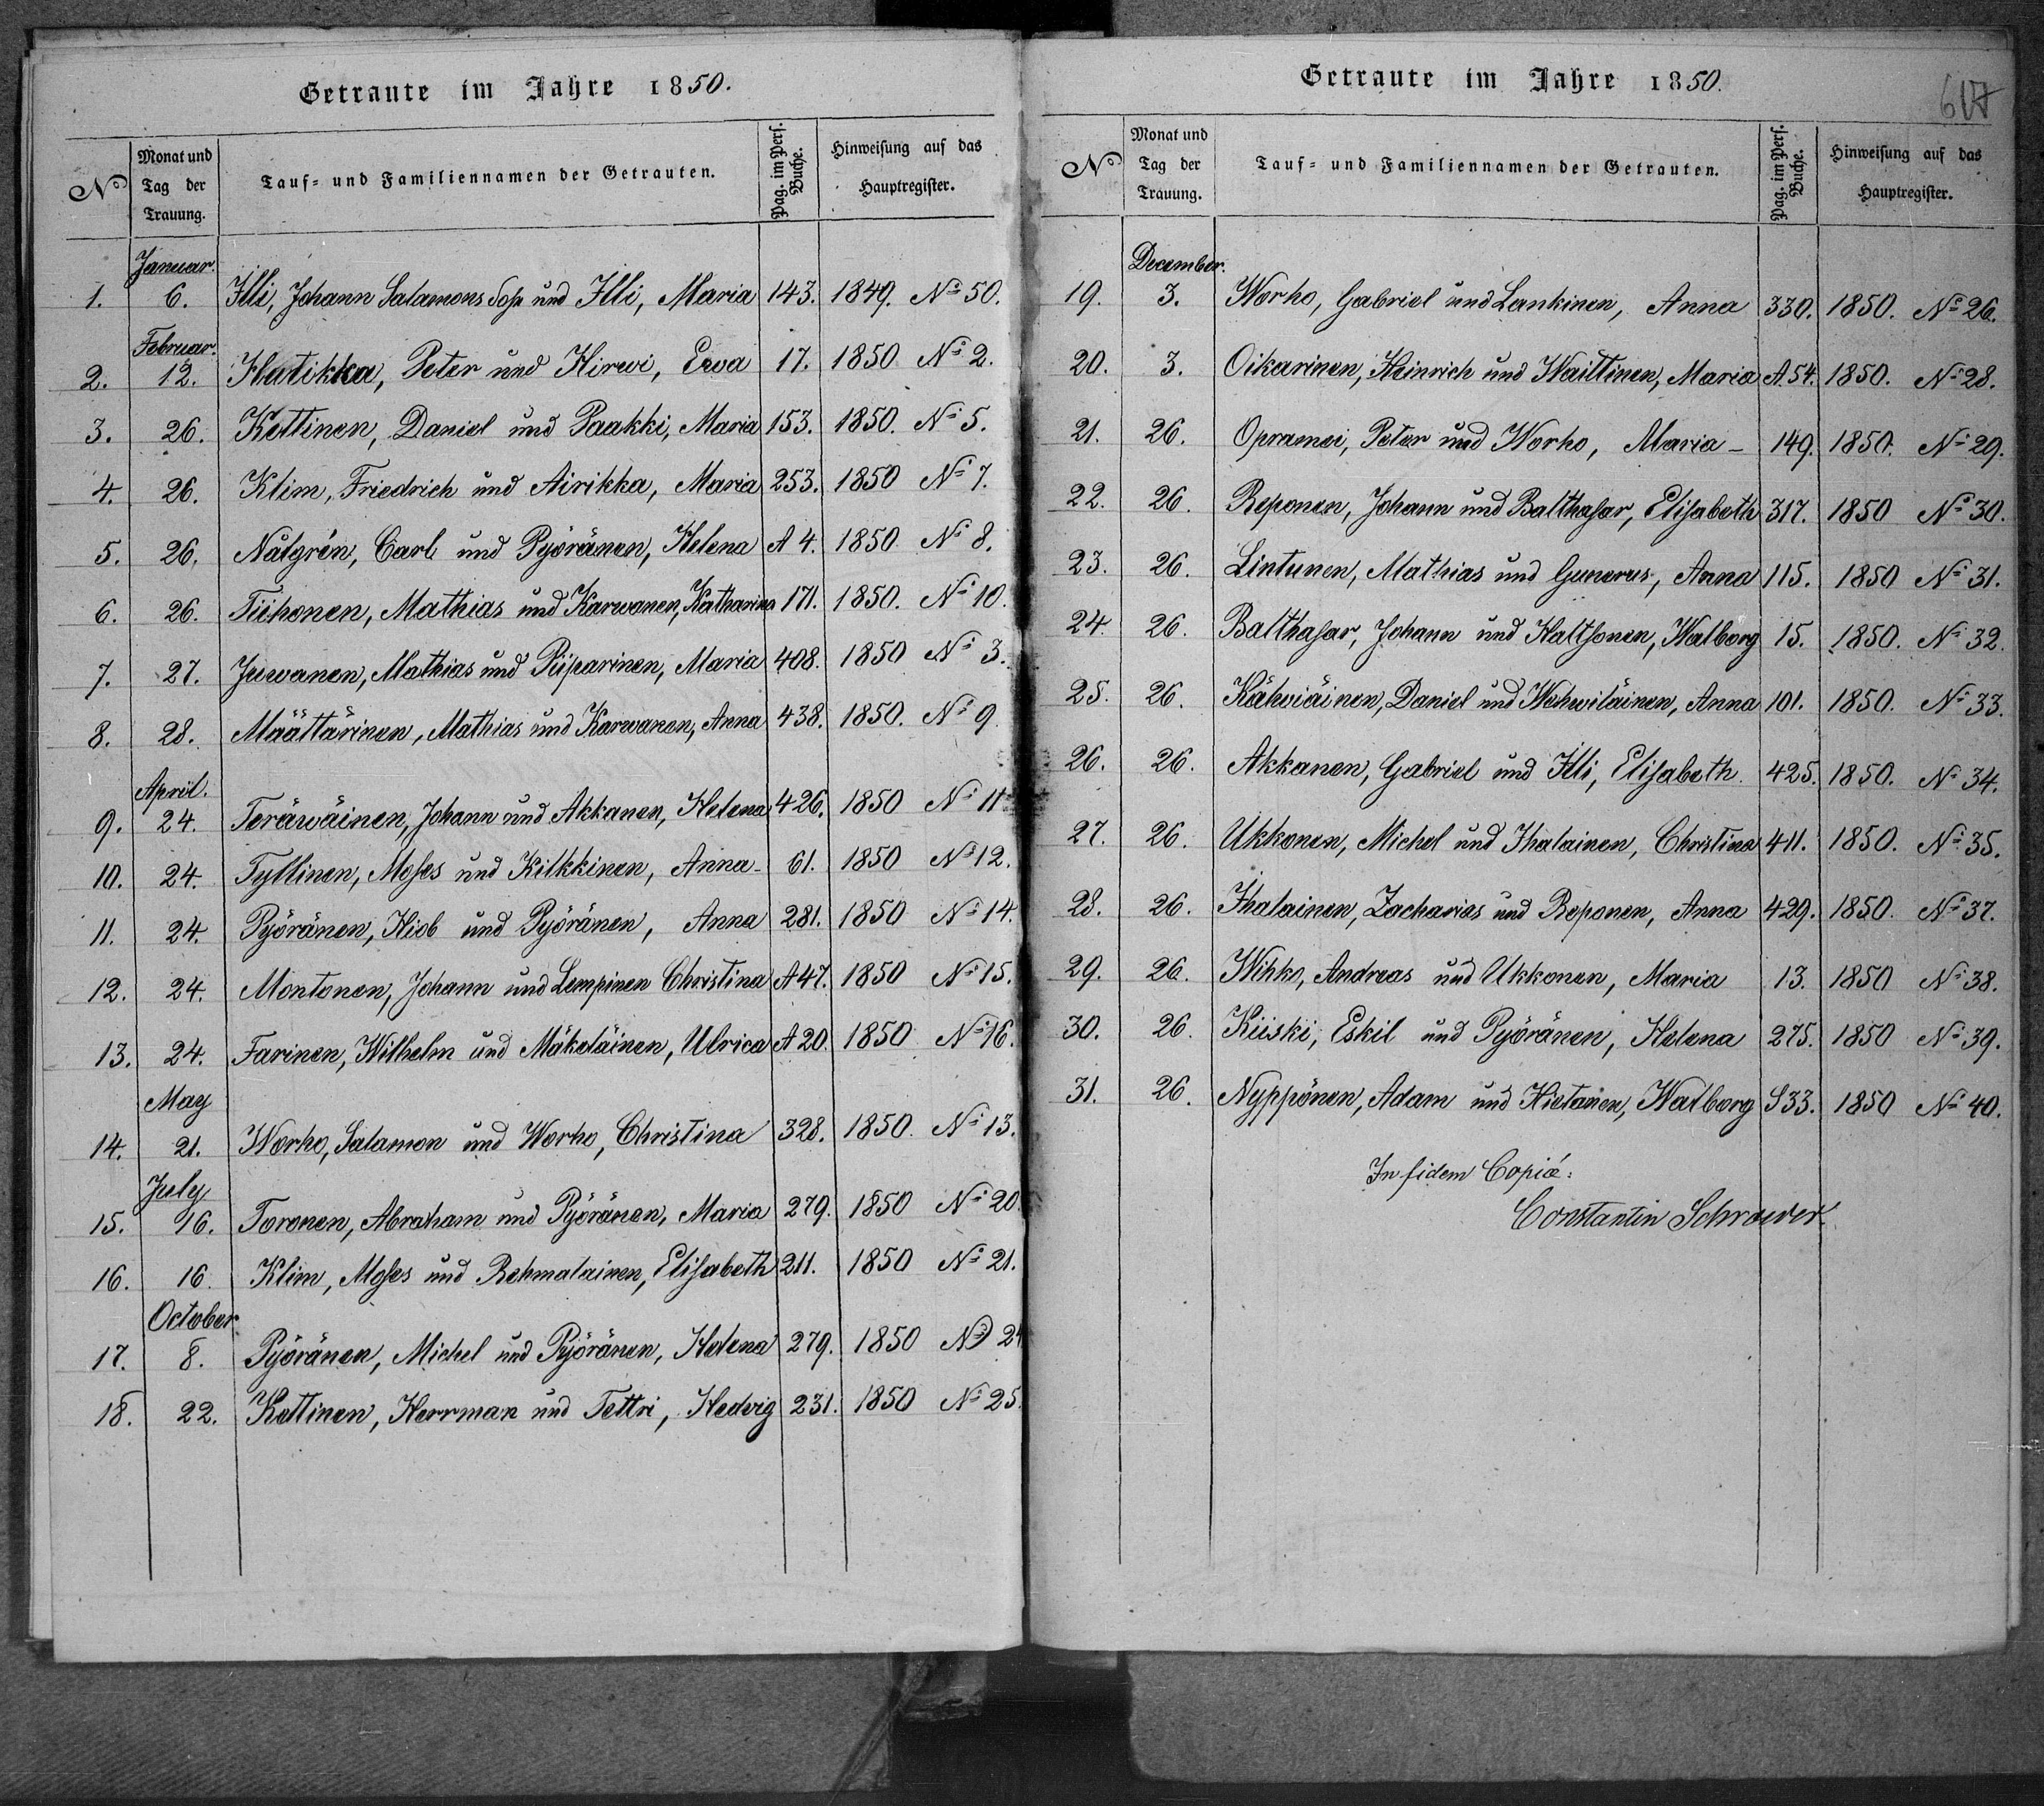 Getraute im Jahre 1850.
No | Monat und Tag der Trauung. | Tauf- und Familiennamen der Getrauten. | Pag. im Pers. Buche. | Hinweisung auf das Hauptregister.
Januar.
1. 6. Illi, Johann Salamons Sohn und Illi, Maria 143. 1849. No 50.
Februar.
2. 12. Hatikka, Peter und Hirwi, Ewa 17. 1850 No 2.
3. 26. Kettinen, Daniel und Paakki, Maria 153. 1850. No 5.
4. 26. Klim, Friedrich und Airikka, Maria 253. 1850 No 7.
5. 26. Nålgrén, Carl und Pyöränen, Helena A 4. 1850 No 8.
6. 26. Tiihonen, Mathias und Karwanen, Katharina 171. 1850. No 10.
7. 27. Juwanen, Mathias und Piiparinen, Maria 408. 1850 No 3.
8. 28. Määttärinen, Mathias und Karwanen, Anna 438. 1850. No 9.
April.
9. 24. Teräwäinen, Johann und Akkanen, Helena 426. 1850 No 11
10. 24. Tyllinen, Moses und Kilkkinen, Anna - 61. 1850 No 12.
11. 24. Pyöränen, Hiob und Pyöränen, Anna 281. 1850 No 14.
12. 24. Montonen, Johann und Lempinen Christina A 47. 1850 No 15.
13. 24. Farinen, Wilhelm und Mäkeläinen, Ulrica A 20. 1850 No 16.
May
14. 21. Worho, Salamon und Worho, Christina 328. 1850. No 13.
July
15. 16. Toronen, Abraham und Pyöränen, Maria 279. 1850 No 20.
16. 16. Klim, Moses und Rehmalainen, Elisabeth 211. 1850 No 21.
October
17. 8. Pyöränen, Michel und Pyöränen, Helena 279. 1850 No 24
18. 22. Kettinen, Herrman und Tettri, Hedvig 231. 1850 No 25.
Getraute im Jahre 1850.
No | Monat und Tag der Trauung. | Tauf- und Familiennamen der Getrauten. | Pag. im Pers. Buche. | Hinweisung auf das Hauptregister.
December.
19. 3. Worho, Gabriel und Lankinen, Anna 330. 1850. No 26.
20. 3. Oikarinen, Heinrich und Waittinen, Maria A. 54. 1850. No 28.
21. 26. Opramei, Peter und Worho, Maria - 149. 1850. No 29.
22. 26. Reponen, Johann und Balthasar, Elisabeth 317. 1850 No 30.
23. 26. Lintunen, Mathias und Gunerus, Anna 115. 1850 No 31.
24. 26. Balthasar, Johann und Haltsonen, Walborg 15. 1850. No 32.
25. 26. Kähviäinen, Daniel und Wehwiläinen, Anna 101. 1850. No 33.
26. 26. Akkanen, Gabriel und Illi, Elisabeth 425. 1850. No 34.
27. 26. Ukkonen, Michel und Ihalainen, Christina 411. 1850. No 35.
28. 26. Ihalainen, Zacharias und Reponen, Anna 429. 1850. No 37.
29. 26. Wihko, Andreas und Ukkonen, Maria 13. 1850 No 38.
30. 26. Kiiski, Eskil und Pyöränen, Helena 275. 1850 No 39.
31. 26. Nyppönen, Adam und Hietanen, Walborg S 33. 1850 No 40.
In fidem Copiæ:
Constantin Schrœwer.